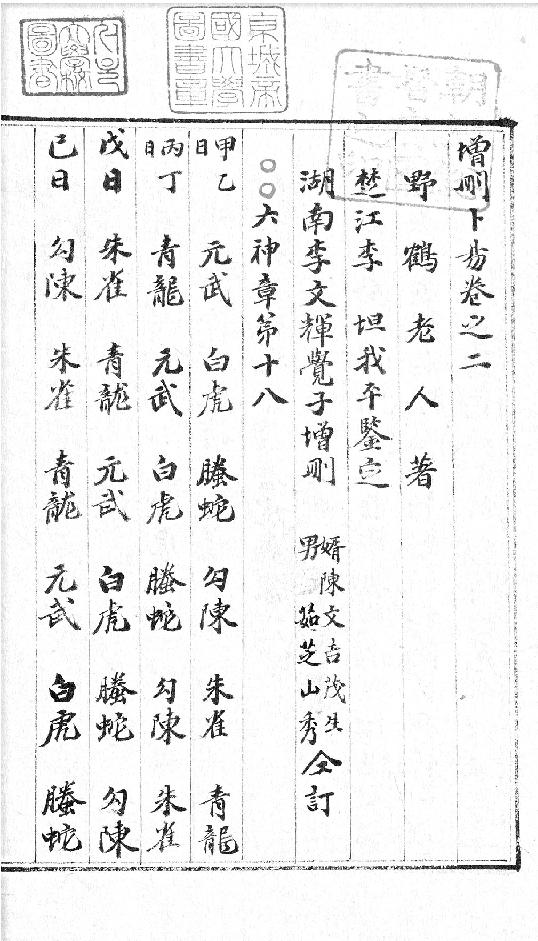 增刪卜易卷之二
野鶴老人著
楚江李 坦我平鑒定
湖南李文輝覺子增刪 婿陳文吉茂生
男 茹芝山秀 仝訂
○○六神章第十八
甲乙日 元武 白虎 螣蛇 勾陳 朱雀 青龍
丙丁日 青龍 元武 白虎 螣蛇 勾陳 朱雀
戊日 朱雀 青龍 元武 白虎 螣蛇 勾陳
己日 勾陳 朱雀 青龍 元武 白虎 螣蛇
京城帝國大學圖書章